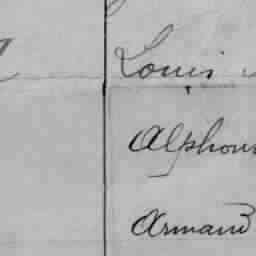 Louis
Alphons
Armand